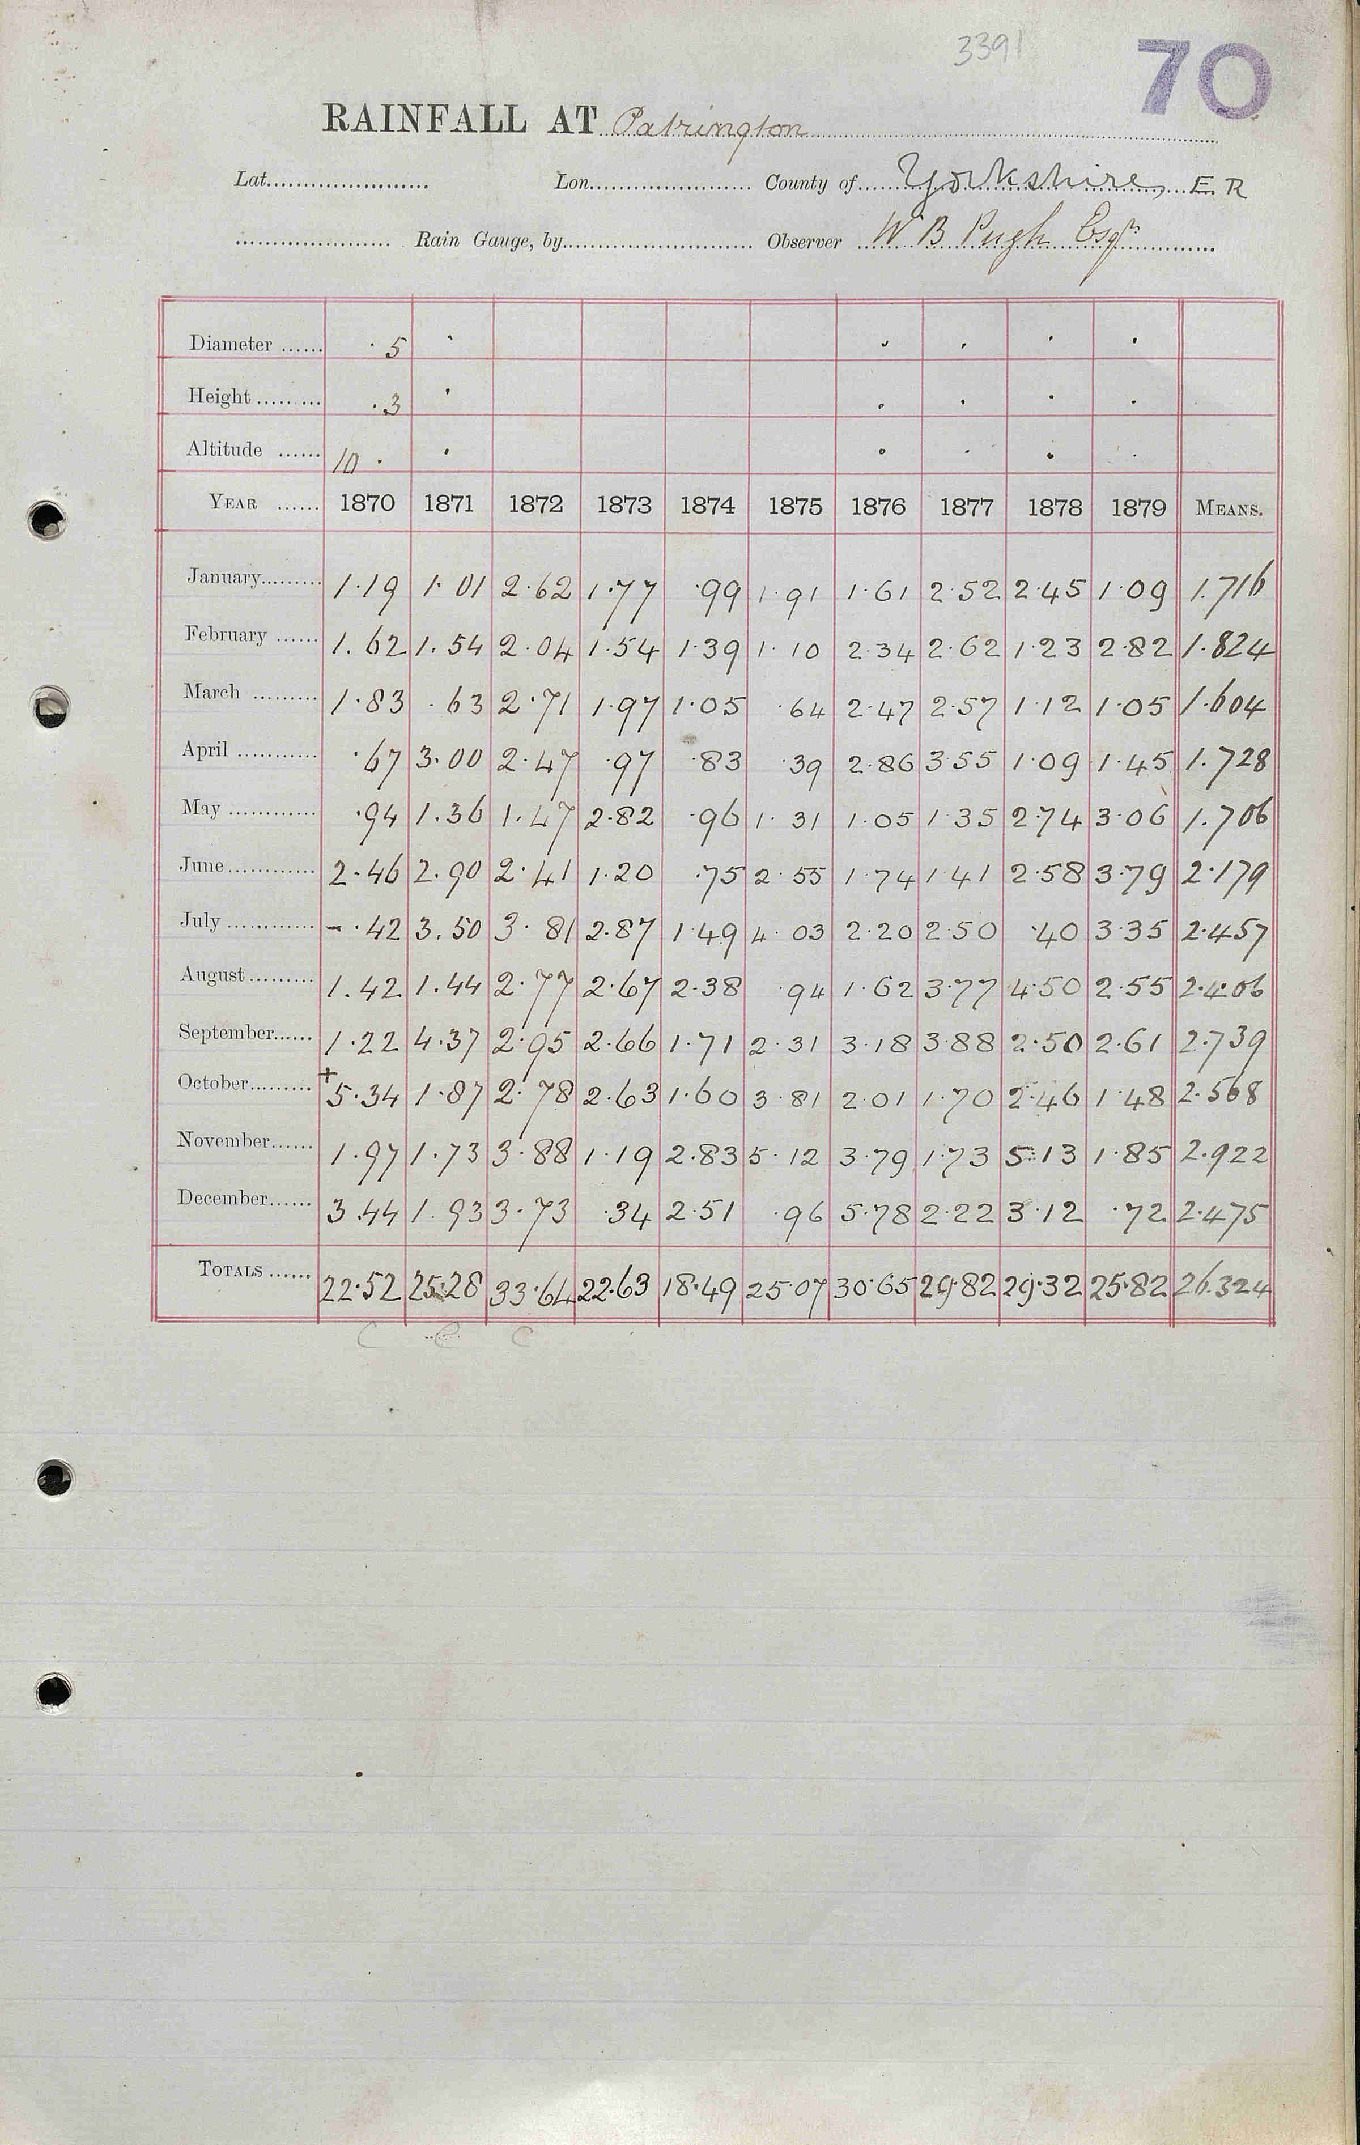 3391
70
RAINFALL AT Patrington
Lat. Lon. County of Yorkshire, E R
Rain Gauge, by Observer W B Pugh Esqr
Diameter 5
Height 3
Altitude 10
YEAR 1870 1871 1872 1873 1874 1875 1876 1877 1878 1879 MEANS.
January 1.19 1.01 2.62 1.77 .99 1.91 1.61 2.52 2.45 1.09 1.716
February 1.62 1.54 2.04 1.54 1.39 1.10 2.34 2.62 1.23 2.82 1.824
March 1.83 .63 2.71 1.97 1.05 .64 2.47 2.57 1.12 1.05 1.604
April .67 3.00 2.47 .97 .83 .39 2.86 3.55 1.09 1.45 1.728
May .94 1.36 1.47 2.82 .96 1.31 1.05 1.35 2.74 3.06 1.706
June 2.46 2.90 2.41 1.20 .75 2.55 1.74 1.41 2.58 3.79 2.179
July - .42 3.50 3.81 2.87 1.49 4.03 2.20 2.50 .40 3.35 2.457
August 1.42 1.44 2.77 2.67 2.38 .94 1.62 3.77 4.50 2.55 2.406
September 1.22 4.37 2.95 2.66 1.71 2.31 3.18 3.88 2.50 2.61 2.739
October + 5.34 1.87 2.78 2.63 1.60 3.81 2.01 1.70 2.46 1.48 2.568
November 1.97 1.73 3.88 1.19 2.83 5.12 3.79 1.73 5.13 1.85 2.922
December 3.44 1.93 3.73 .34 2.51 .96 5.78 2.22 3.12 .72 2.475
TOTALS 22.52 25.28 33.64 22.63 18.49 25.07 30.65 29.82 29.32 25.82 26.324
C C C